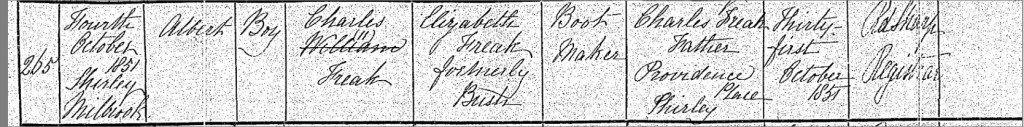 265
Fourth
October
1851
Shirley
Milbrook
Albert
Boy
Charles
William
Freak
Elizabeth
Freak
formerly
Bush
Boot
Maker
Charles Freak
Father
Providence
Place
Shirley
Thirty-
first
October
1851
Registrar